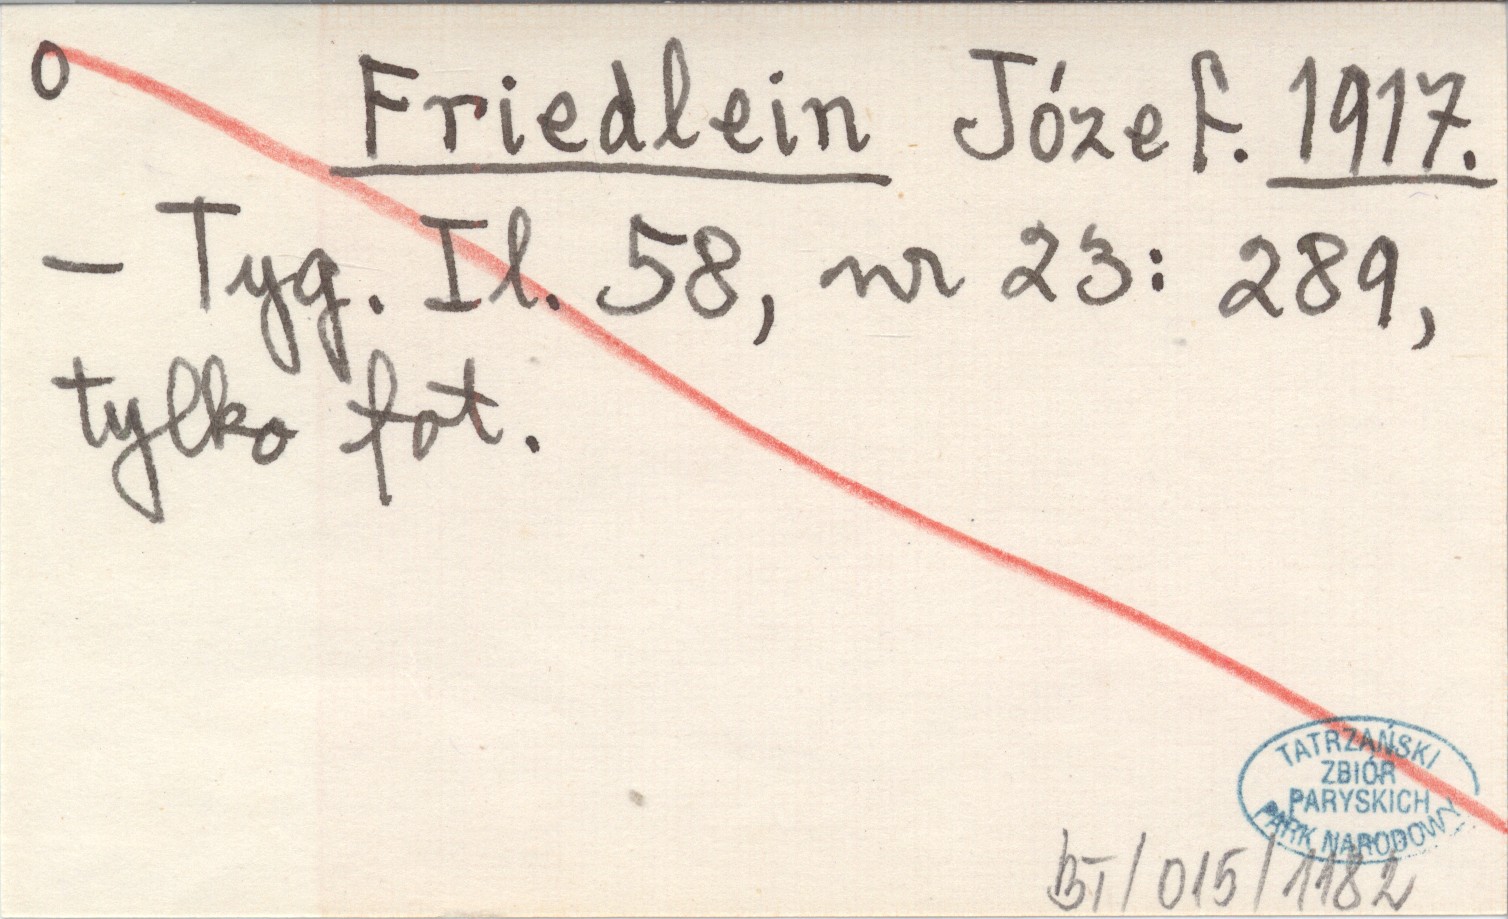 o Friedlein Józef. 1917.
– Tyg. Il. 58, nr 23: 289,
tylko fot.
TATRZAŃSKI
ZBIÓR
PARYSKICH
PARK NARODOWY
BT/015/1182